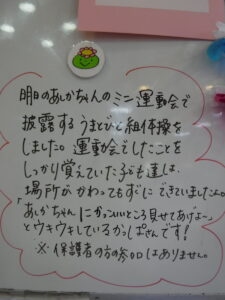 明日のあしかちゃんのミニ運動会で
披露するうまとびと組体操を
しました。運動会でしたことを
しっかり覚えていた子ども達は、
場所がかわってもすぐにできていましたよ。
「あしかちゃんにかっこいいところ見せてあげよ〜」
とウキウキしているかっぱさんです!
※保護者の方の参加はありません。